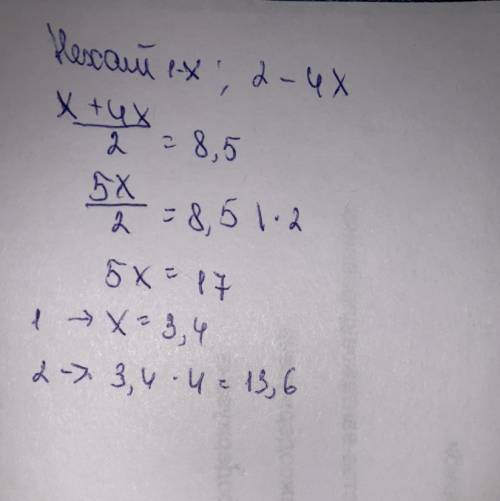 Нехай 1-x; 2-4x
x+4x/2 = 8,5
5x/2 = 8,5 |·2
5x = 17
1 → x = 3,4
2 → 3,4 · 4 = 13,6